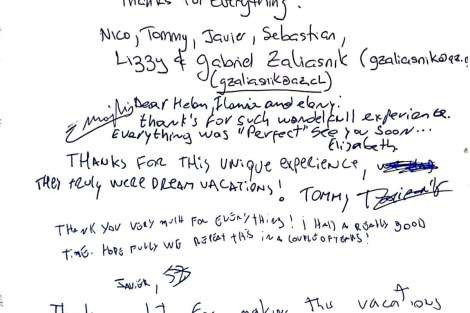 Thanks for Everything.
Nico, Tommy, Javier, Sebastian,
Lizzy & Gabriel Zaliasnik (gzaliasnik@az.c
(gzaliasnik@az.cl)
Dear Helen, and ebony:
thank's for such wonderfull experience.
Everything was "Perfect" See you soon...
Elizabeth
THANKS FOR THIS UNIQUE EXPERIENCE,
THEY TRULY WERE DREAM VACATIONS! TOMMY
THANK YOU VERY MUCH FOR EVERYTHING! I HAD A REALLY GOOD
TIME. HOPE FULLY WE REPEAT THIS IN A COUPLE OF YEARS!
JAVIER,
for making this vacations